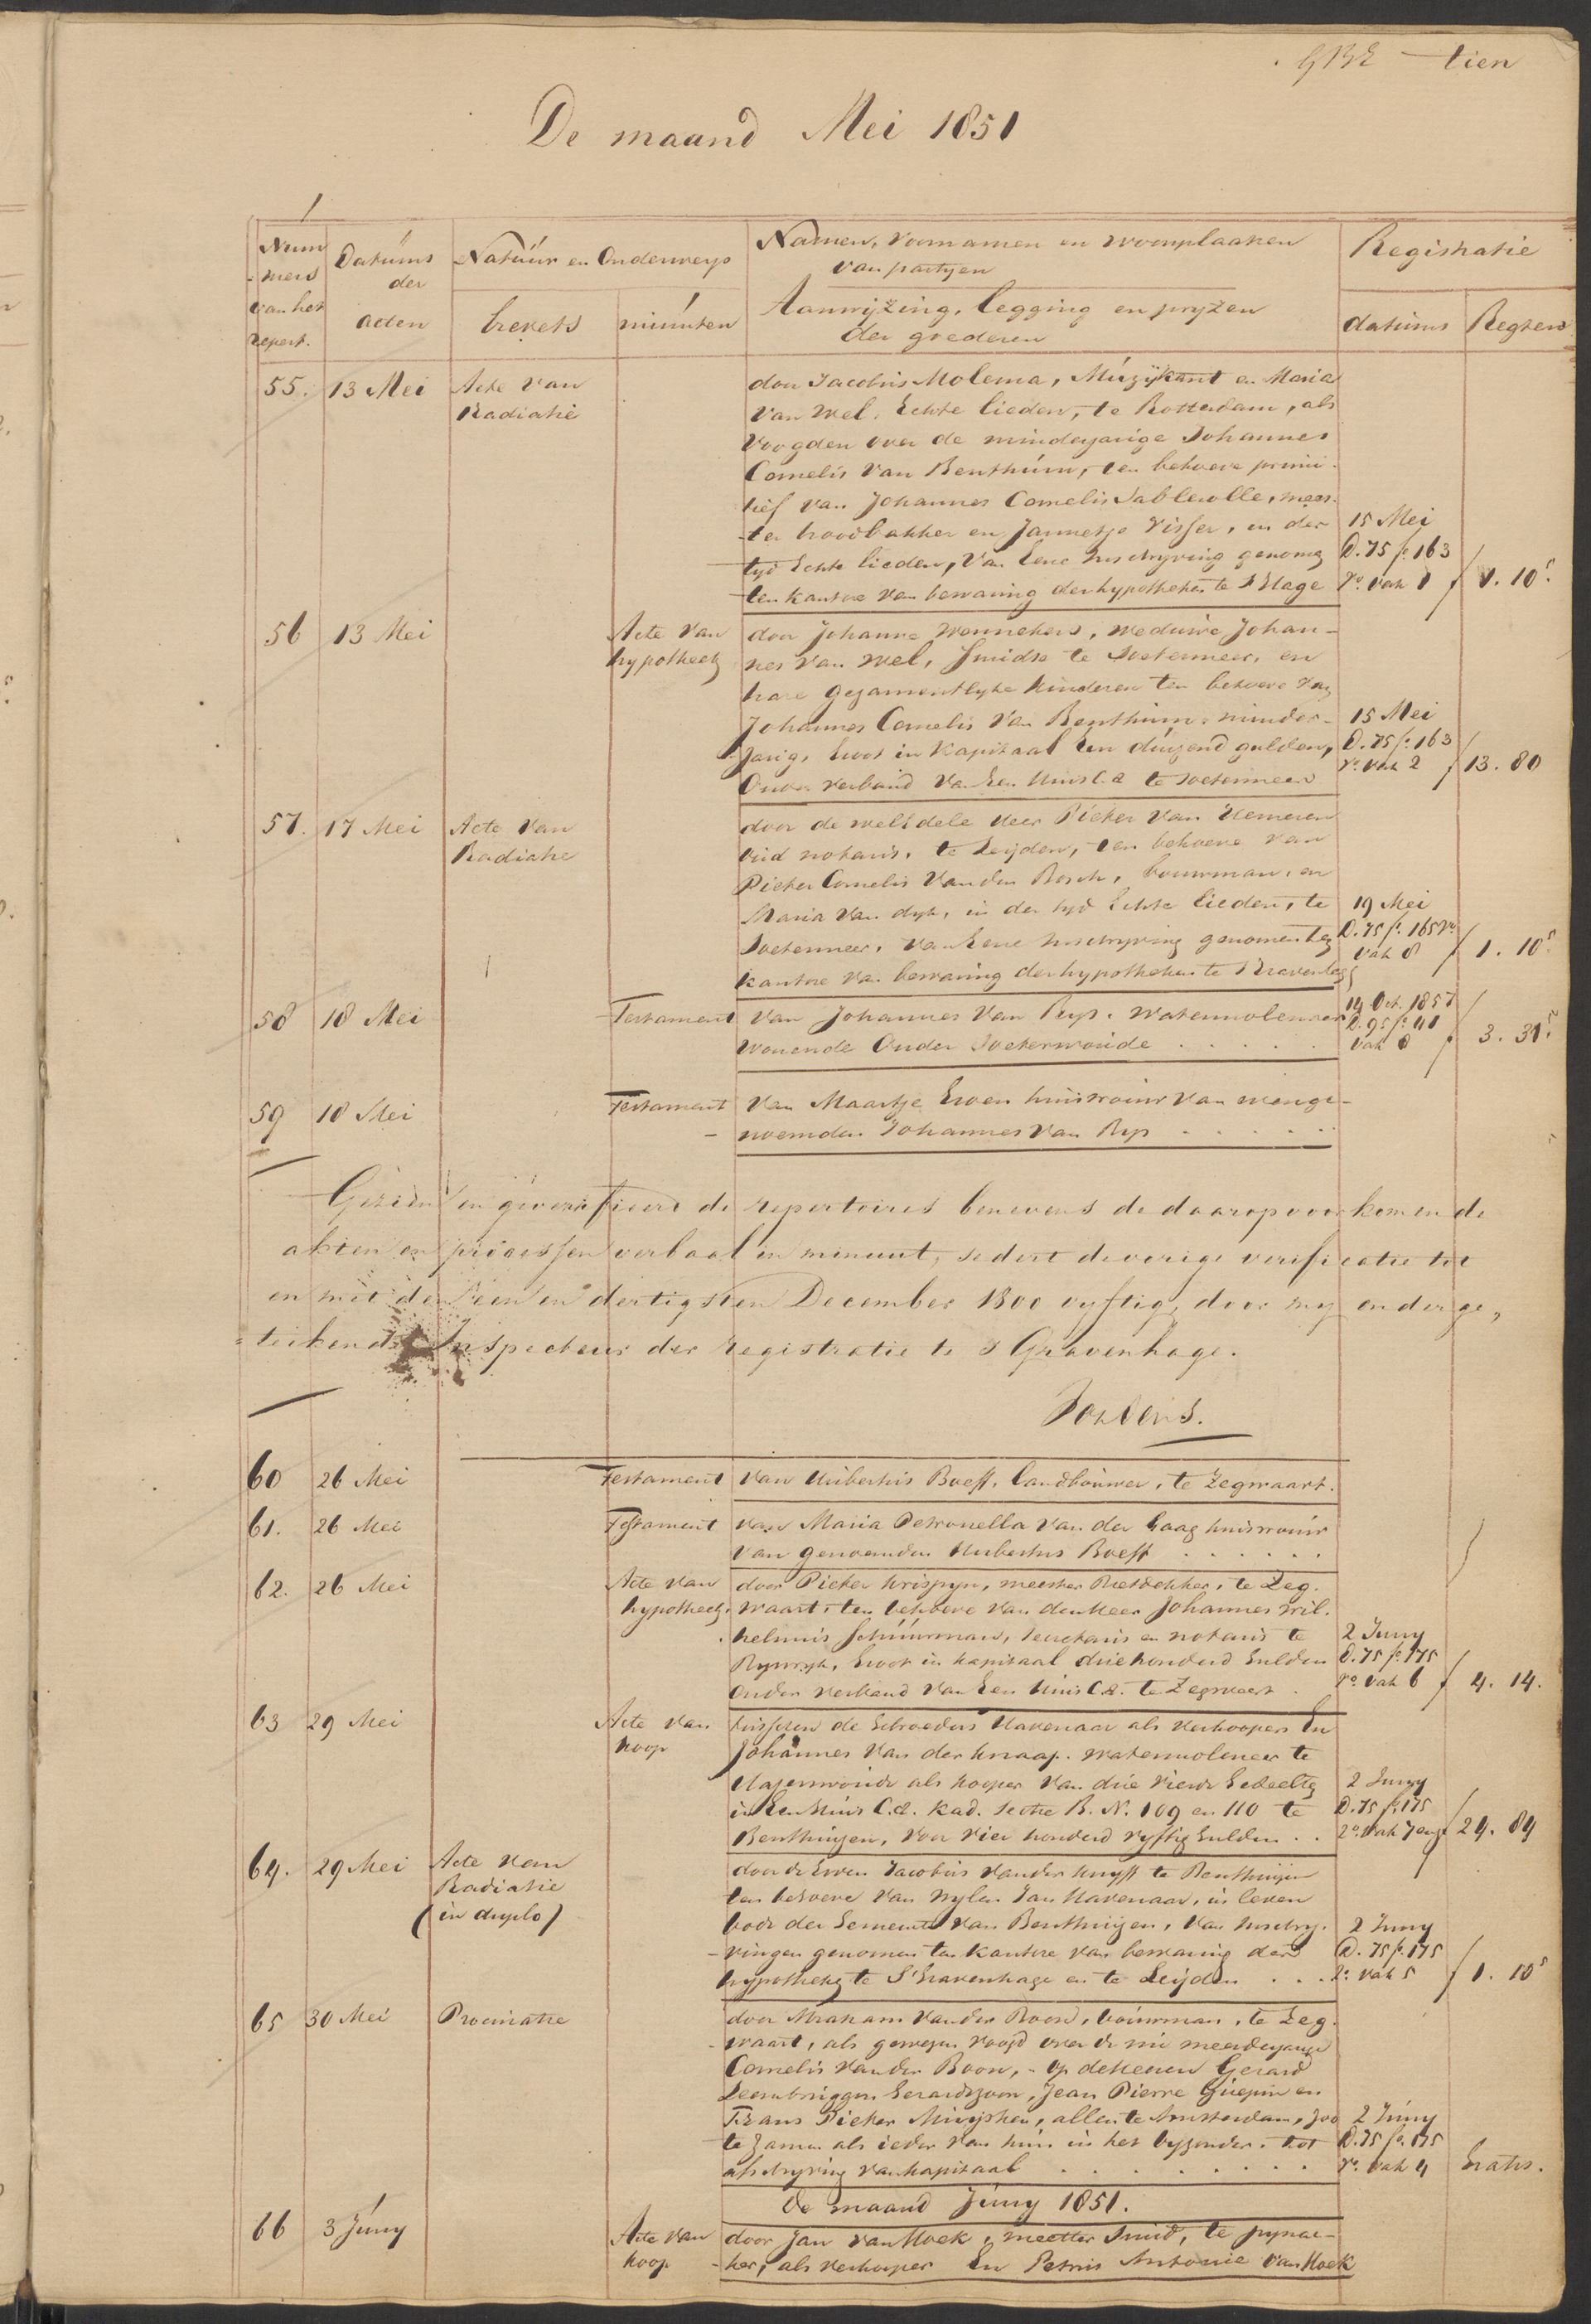 tien
De maand Mei 1851
Num
-mers
van het
repert.
Datums
der
acten
Natuur en Onderwerp
brevets
minuten
Namen, voornamen en woonplaatsen
van partyen
Aanwijzing, legging en pryzen
der goederen
Registratie
datums
Regten
55. 13 Mei Acte van
Radiatie
door Jacobus Molema, Muzykant en Maria
van Wel, Echte lieden, te Rotterdam, als
Voogden over de minderjarige Johannes
Cornelis van Benthum, ten behoeve primi-
tief van Johannes Cornelis Sablerolle, mees-
ter broodbakker en Jannetje Visser, in der
tyd Echte lieden, van Eene inschryving genomen
ten kantore van bewaring der hypotheken te S'Hage
15 Mei
D. 75 fo. 163
ro. vak 1 f 1. 10 5.
56 13 Mei Acte van
hypotheek
door Johanna Wennekers, weduwe Johan-
nes van Wel, smidse te Soetermeer, en
hare gezamentlyke kinderen ten behoeve van
Johannes Cornelis van Benthum, minder-
jarig, Groot in Kapitaal Een duizend gulden,
Onder verband van Een Huis C.a. te Soetermeer
15 Mei
D. 75 fo. 163
ro. vak 2 f 13. 80
57. 17 Mei Acte van
Radiatie
door de welEdele Heer Pieter van Hemeren
oud notaris, te Leijden, ten behoeve van
Pieter Cornelis van den Bosch, bouwman, en
Maria van dyk, in der tyd Echte lieden, te
Soetermeer, van Eene inschryving genomen ten
kantore van bewaring der hypotheken te S'Gravenhage
19 Mei
D. 75 fo. 165 vo.
vak 8 f 1. 10 5.
58 18 Mei Testament
van Johannes van Ryp, Watermolenaar
wonende Onder Soeterwoude . . . . .
14 Oct. 1857
D. 95 fo. 41
vak 8 f 3. 31 5.
59 18 Mei Testament
van Maartje Groen huisvrouw van evenge-
noemden Johannes van Ryp . . . . . .
Gezien en geverifieerd de repertoires benevens de daarop voorkomende
akten en processen verbaal in minuut, sedert de vorige verificatie tot
en met den een en dertigsten December 1800 vyftig, door my onderge-
teekende Inspecteur der registratie te s Gravenhage.
60 26 Mei Testament van Huibertus Boeff, landbouwer, te Zegwaart.
61. 26 Mei Testament van Maria Petronella van der Haag huisvrouw
van genoemden Huibertus Boeff . . . . . .
62. 26 Mei Acte van
hypotheek.
door Pieter Krispyn, meester Rietdekker, te Zeg-
waart, ten behoeve van den Heer Johannes Wil-
helmus Schuurman, secretaris en notaris te
Ryswyk, Groot in kapitaal driehonderd Gulden
Onder verband van Een Huis C.a. te Zegwaart .
2 Juny
D. 75 fo. 175
ro. vak 6 f 4. 14.
63 29 Mei Acte van
koop
tusschen de Gebroeders Havenaar als verkoopers En
Johannes van der Knaap, watermolenaar te
Hazerswoude als kooper van drie vierde Gedeelten
in Een Huis C.a. Kad. sectie B. N. 109 en 110 te
Benthuijzen, voor vier honderd vyftig Gulden . .
2 Juny
D. 75 fo. 175
f 24. 84
64. 29 Mei Acte van
Radiatie
(in duplo)
door de Erven Jacobus van der Kruyff te Benthuijzen
ten behoeve van wylen Jan Havenaar, in leven
bode der Gemeente van Benthuijzen, van inschry-
vingen genomen ten kantore van bewaring der
hypotheken te S'Gravenhage en te Leijden . . .
2 Juny
D. 75 fo. 175
ro. vak 5 f 1. 10 5
65 30 Mei Procuratie
door Abraham van der Boon, bouwman, te Zeg-
waart, als gewezen voogd over de nu meerderjarige
Cornelis van der Boon, op de Heeren Gerard
Leembruggen Gerardszoon, Jean Pierre Guepin en
Frans Pieter Muijsken, allen te Amsterdam, zoo
te zamen als ieder van hun in het byzonder, tot
afschryving van kapitaal . . . . . . . .
2 Juny
D. 75 fo. 175
ro. vak 4 Gratis.
De maand Juny 1851.
66 3 Juny Acte van
koop
door Jan van Hoek, meester Smid, te Pynac-
ker, als verkooper En Petrus Antonie van Hoek